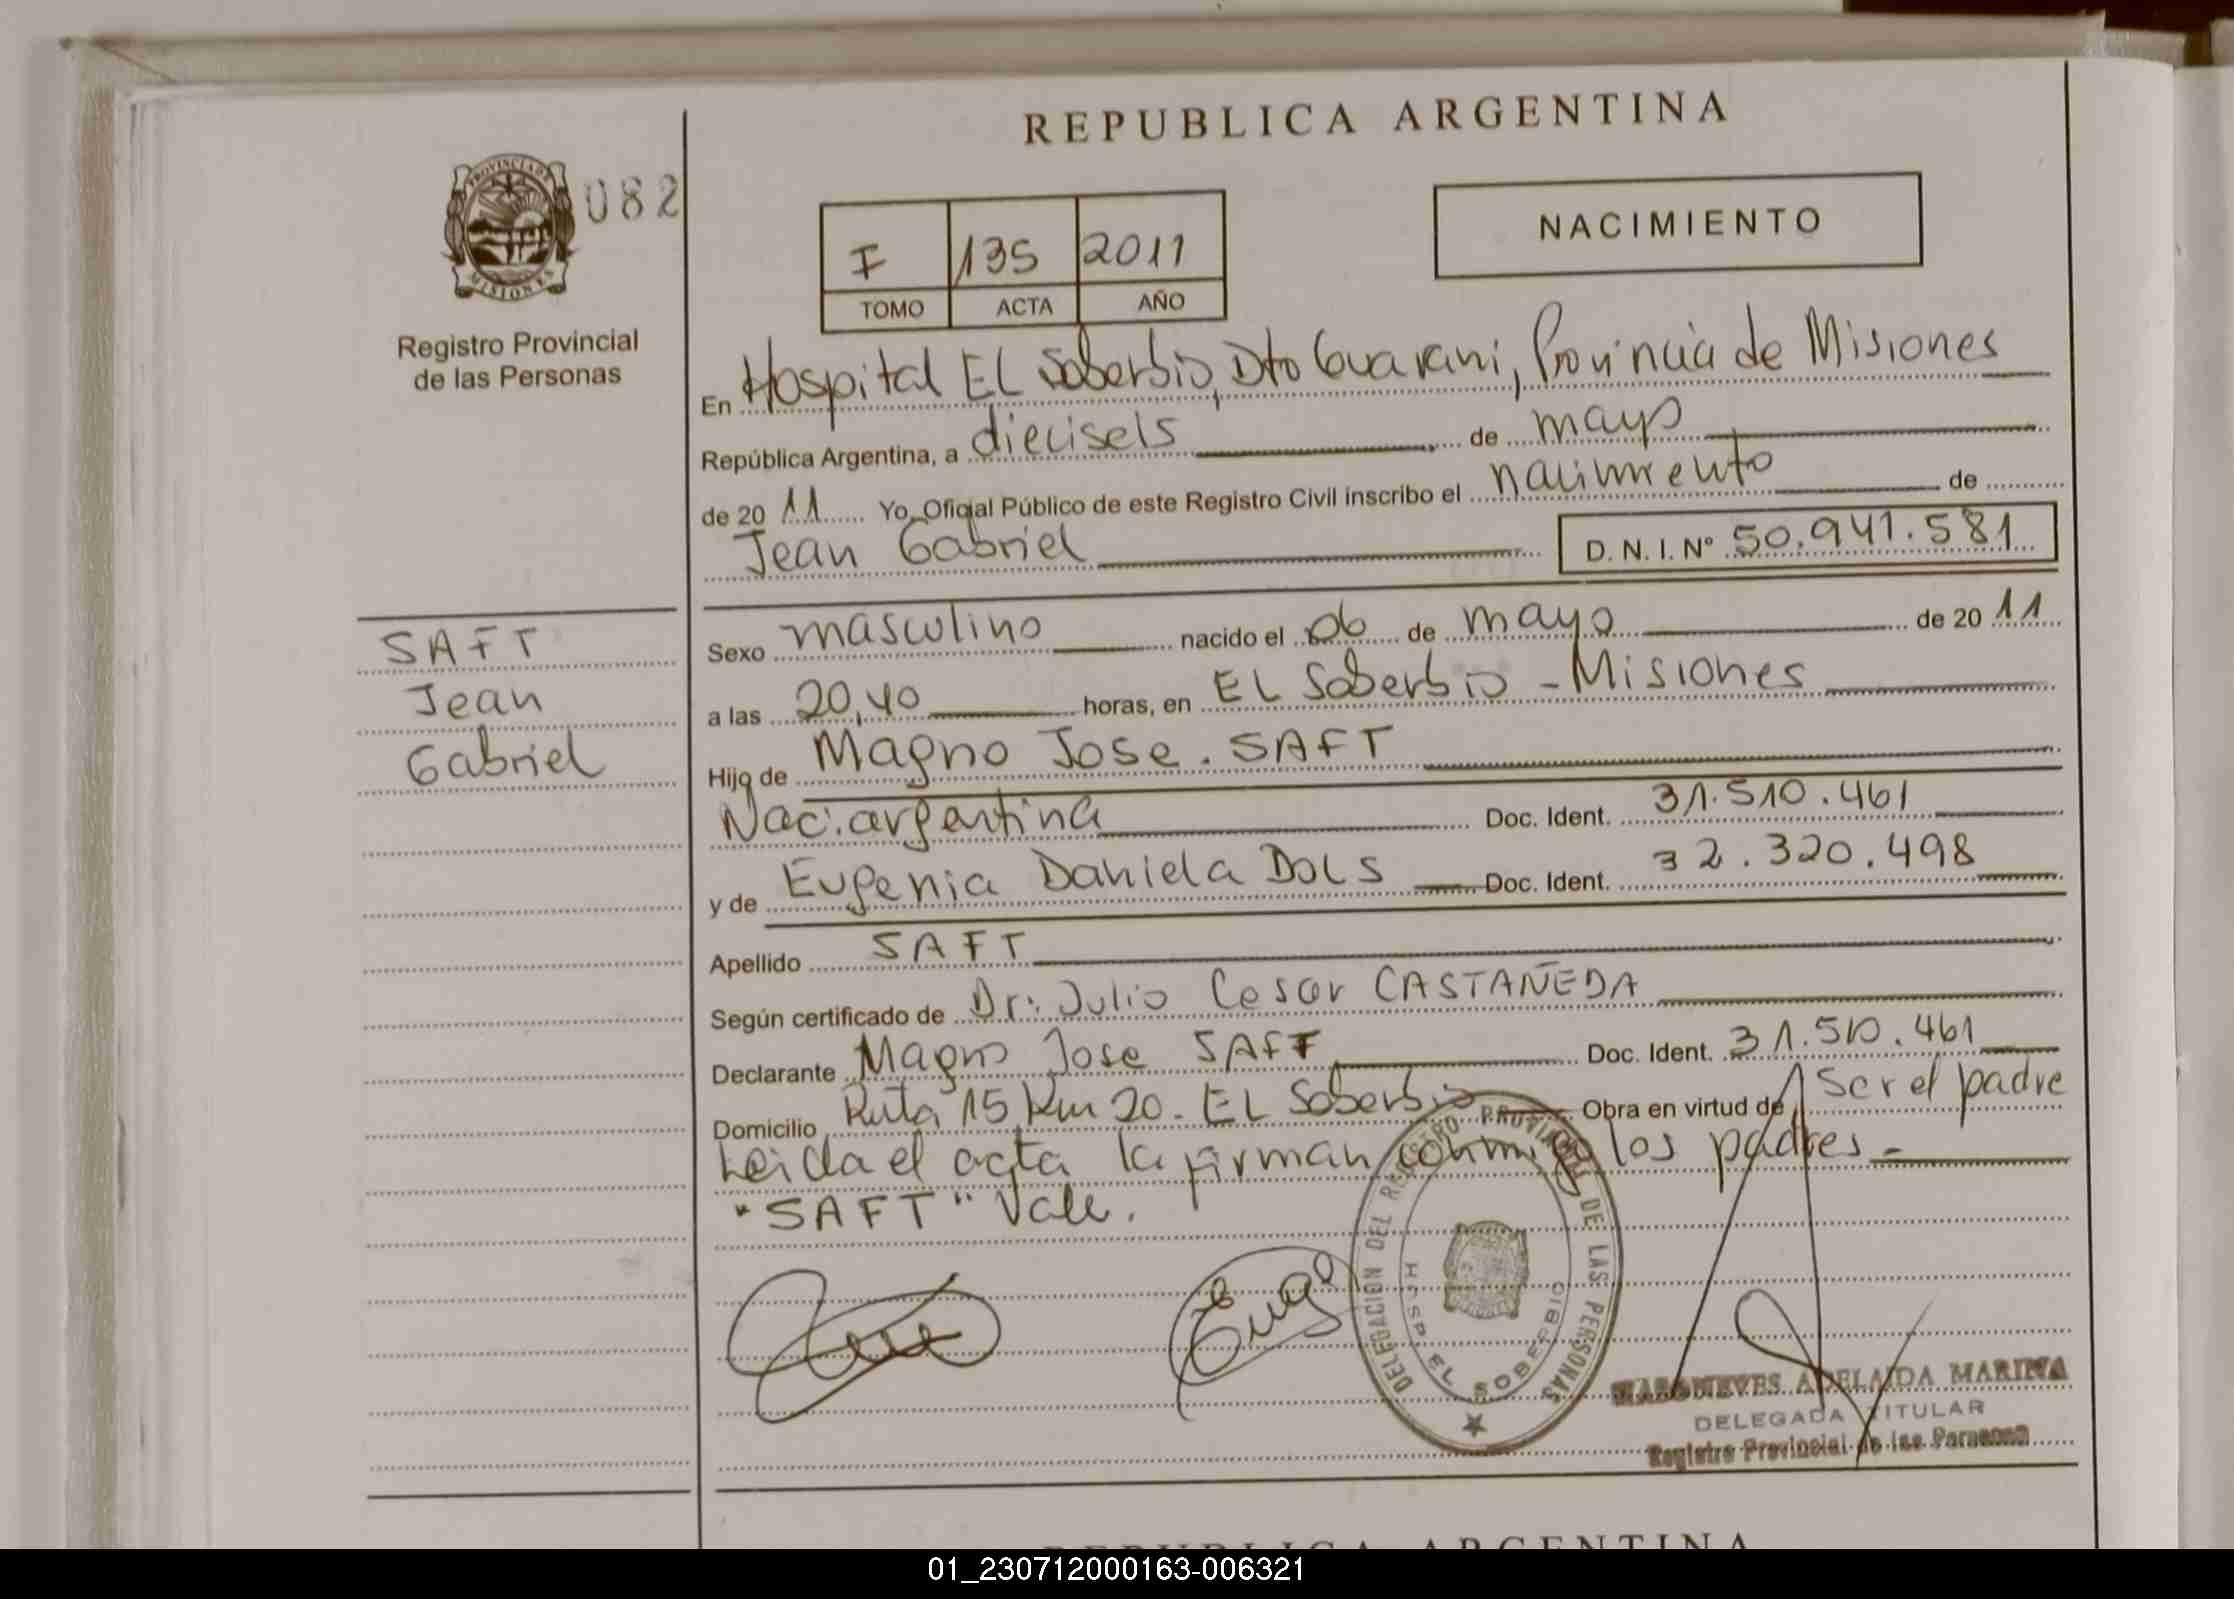 REPUBLICA ARGENTINA
PROVINCIA DE MISIONES
082
Registro Provincial
de las Personas
I 135 2011
TOMO ACTA AÑO
NACIMIENTO
En Hospital EL Soberbio, Dto Guarani, Provincia de Misiones
República Argentina, a dieciseis de mayo
de 20 11 Yo, Oficial Público de este Registro Civil inscribo el nacimiento de
Jean Gabriel D. N. I. Nº 50.941.581
SAFT
Jean
Gabriel
Sexo masculino nacido el 06 de mayo de 20 11
a las 20,40 horas, en EL Soberbio - Misiones
Hijo de Magno Jose. SAFT
Nac. argentina Doc. Ident. 31.510.461
y de Eugenia Daniela DOLS Doc. Ident. 32.320.498
Apellido SAFT
Según certificado de Dr: Julio Cesar CASTAÑEDA
Declarante Magno Jose SAFT Doc. Ident. 31.510.461
Domicilio Ruta 15 Km 20 - EL Soberbio Obra en virtud de Ser el padre
Leida el acta la firman conmigo los padres -
"SAFT" Vale.
DELEGACION DEL REGISTRO PROVINCIAL DE LAS PERSONAS
HOSP. EL SOBERBIO
ADELAIDA MARINA
DELEGADA TITULAR
Registro Provincial de las Personas
REPUBLICA ARGENTINA
01_230712000163-006321